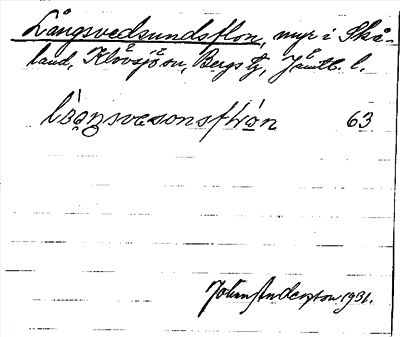 Långsvedsundsflon, myr i Skå-
land, Klövsjö sn, Bergs tg, Jämtl. l.
63
Johan Anderzson 1931.